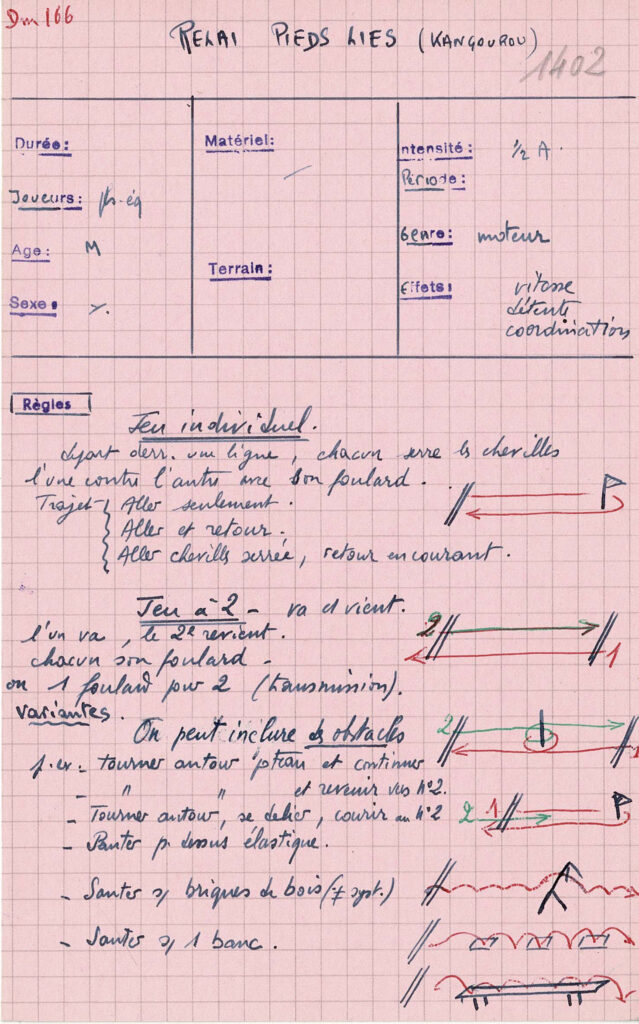 Dm 166
RELAI PIEDS LIES (KANGOUROU)
1402
Durée:
Joueurs: pls. éq
Age: M
Sexe:
Matériel:
Terrain:
Intensité: 1/2 A.
Période:
Genre: moteur
Effets: vitesse
détente
coordination
Règles
Jeu individuel.
départ derr. une ligne, chacun serre les chevilles
l'une contre l'autre avec son foulard.
Trajet Aller seulement.
Aller et retour.
Aller chevilles serrée, retour en courant.
Jeu à 2 - va et vient.
l'un va, le 2e revient.
chacun son foulard -
ou 1 foulard pour 2 (transmission).
2
1
variantes.
On peut inclure des obstacles
p. ex - tourner autour poteau et continuer
- " " et revenir vers n°2.
- Tourner autour, se délier, courir au n°2
2
1
2 1
- Sauter p. dessus élastique.
- Sauter s/ briques de bois (≠ syst.)
- Sauter s/ 1 banc.